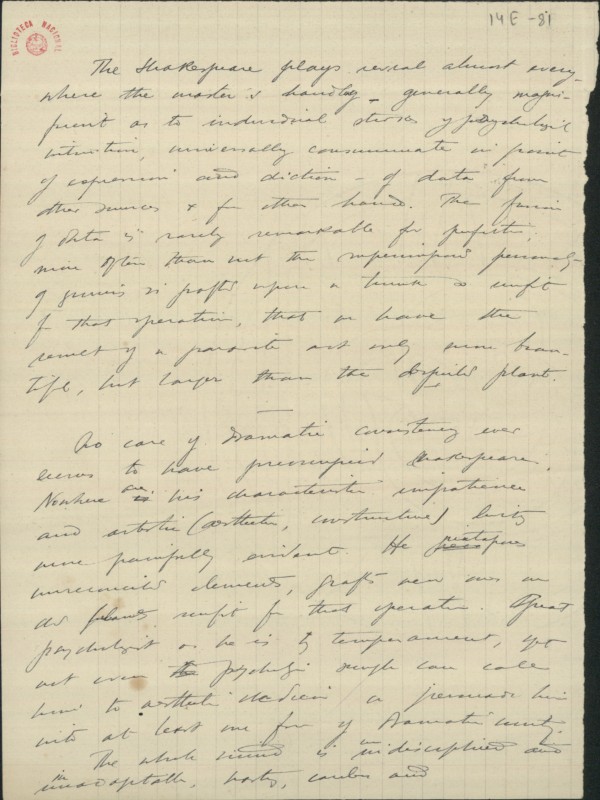 14E - 81
BIBLIOTECA NACIONAL
The Shakespeare plays reveal almost every-
where the master's handling - generally magni-
ficent as to individual of psychologic
intuition, universally consummate in point
of expression and diction - of data from
other sources & from other hands. The fusion
of data is rarely remarkable for perfection;
more often than not the superimposed personality
of genius is grafted upon a trunk so unfit
for that operation, that we have the
result of a parasite not only more beau-
tiful, but larger than the plant.
No care of dramatic consistency ever
seems to have preoccupied Shakespeare.
Nowhere are his characteristic impatience
and artistic (aesthetic, constructive)
more painfully evident. He juxtaposes
unreconciled elements, grafts new ones on
old plants unfit for that operation. Great
psychologist as he is by temperament, yet
not even psychologic could call
him to aesthetic or persuade him
into at least one form of dramatic unity.
The whole mind is undisciplined and
unadaptable, hasty, careless and